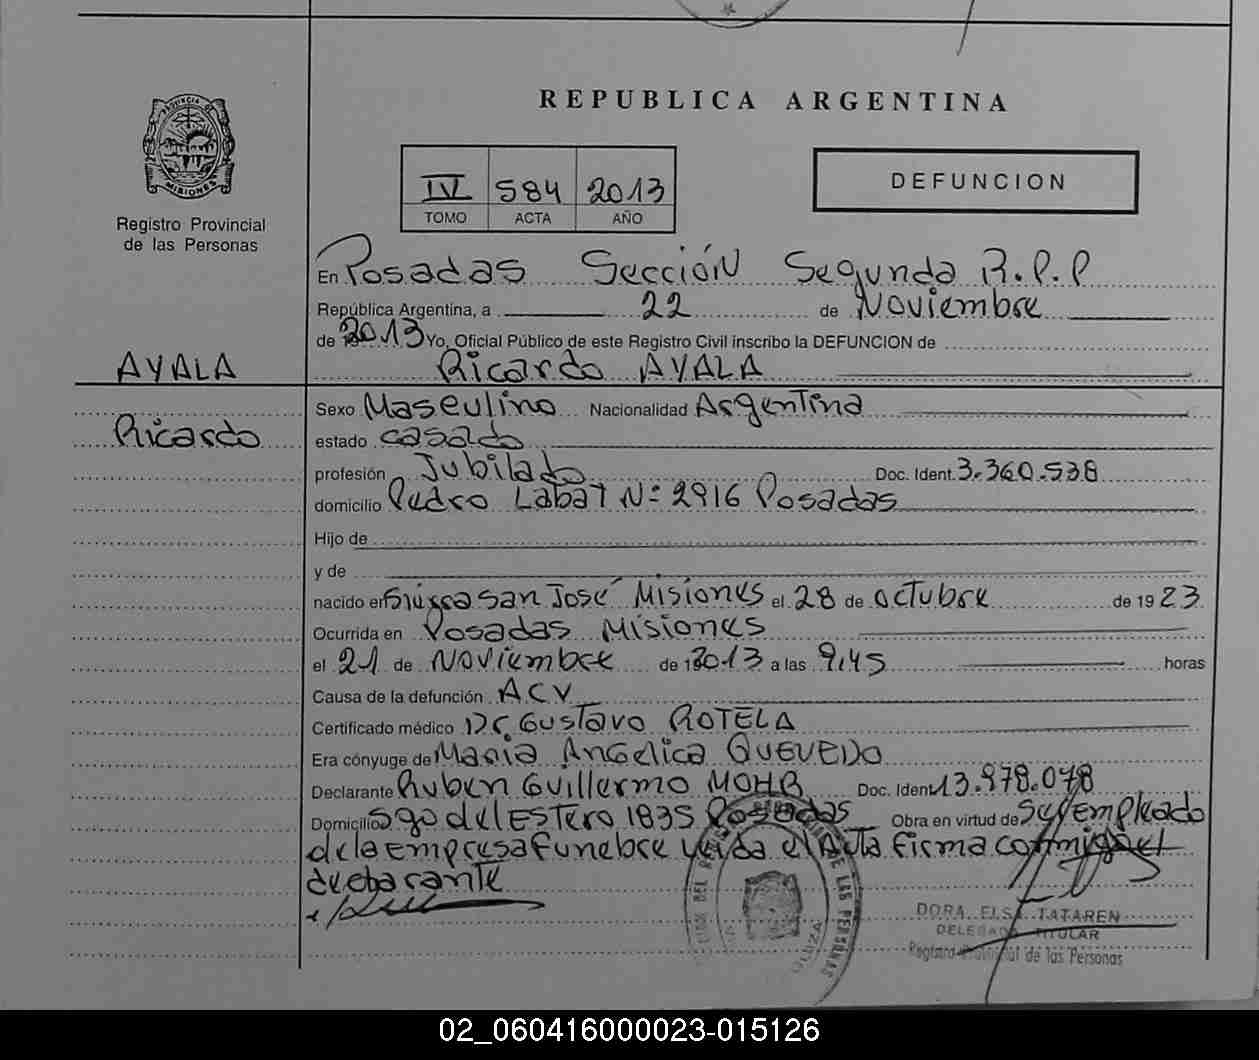 REPUBLICA ARGENTINA
PROVINCIA DE MISIONES
Registro Provincial
de las Personas
IV 584 2013
TOMO ACTA AÑO
DEFUNCION
En Posadas Sección Segunda R.P.P
República Argentina, a 22 de Noviembre
de 2013 Yo, Oficial Público de este Registro Civil inscribo la DEFUNCION de
AYALA
Ricardo AYALA
Ricardo
Sexo Masculino Nacionalidad Argentina
estado casado
profesión Jubilado Doc. Ident. 3.360.538
domicilio Pedro Labat Nº 2916 Posadas
Hijo de
y de
nacido en Sierra San José Misiones el 28 de octubre de 1923
Ocurrida en Posadas Misiones
el 21 de Noviembre de 2013 a las 9,45 horas
Causa de la defunción ACV
Certificado médico Dr Gustavo ROTELA
Era cónyuge de Maria Angelica QUEVEDO
Declarante Ruben Guillermo MOHR Doc. Ident. 13.978.078
Domicilio Sgo del Estero 1835 Posadas Obra en virtud de ser empleado
de la Empresa Funebre leida el Acta firma conmigo el
declarante
DORA. ELSA TATAREN
DELEGADA TITULAR
Registro Provincial de las Personas
02_060416000023-015126